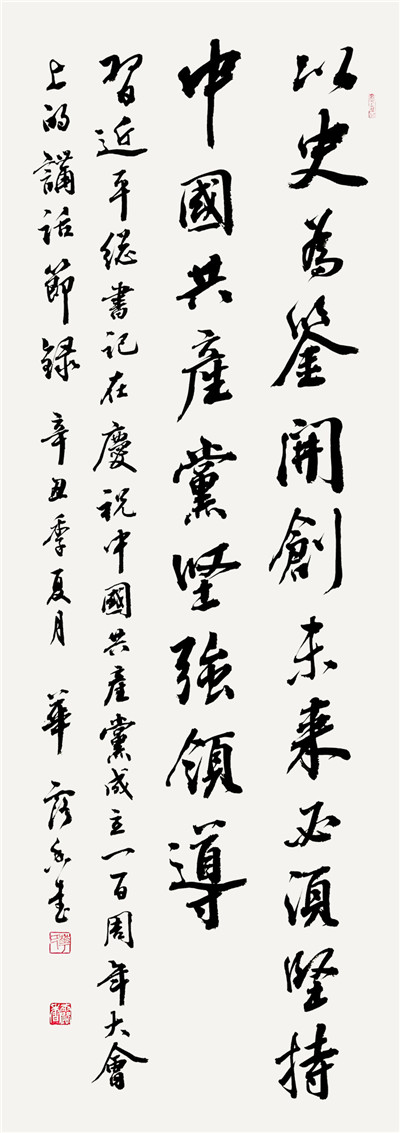 以史為鑒開創未來必須堅持
中國共產黨堅強領導
習近平總書記在慶祝中國共產黨成立一百周年大會
上的講話節録 辛丑季夏月 華露